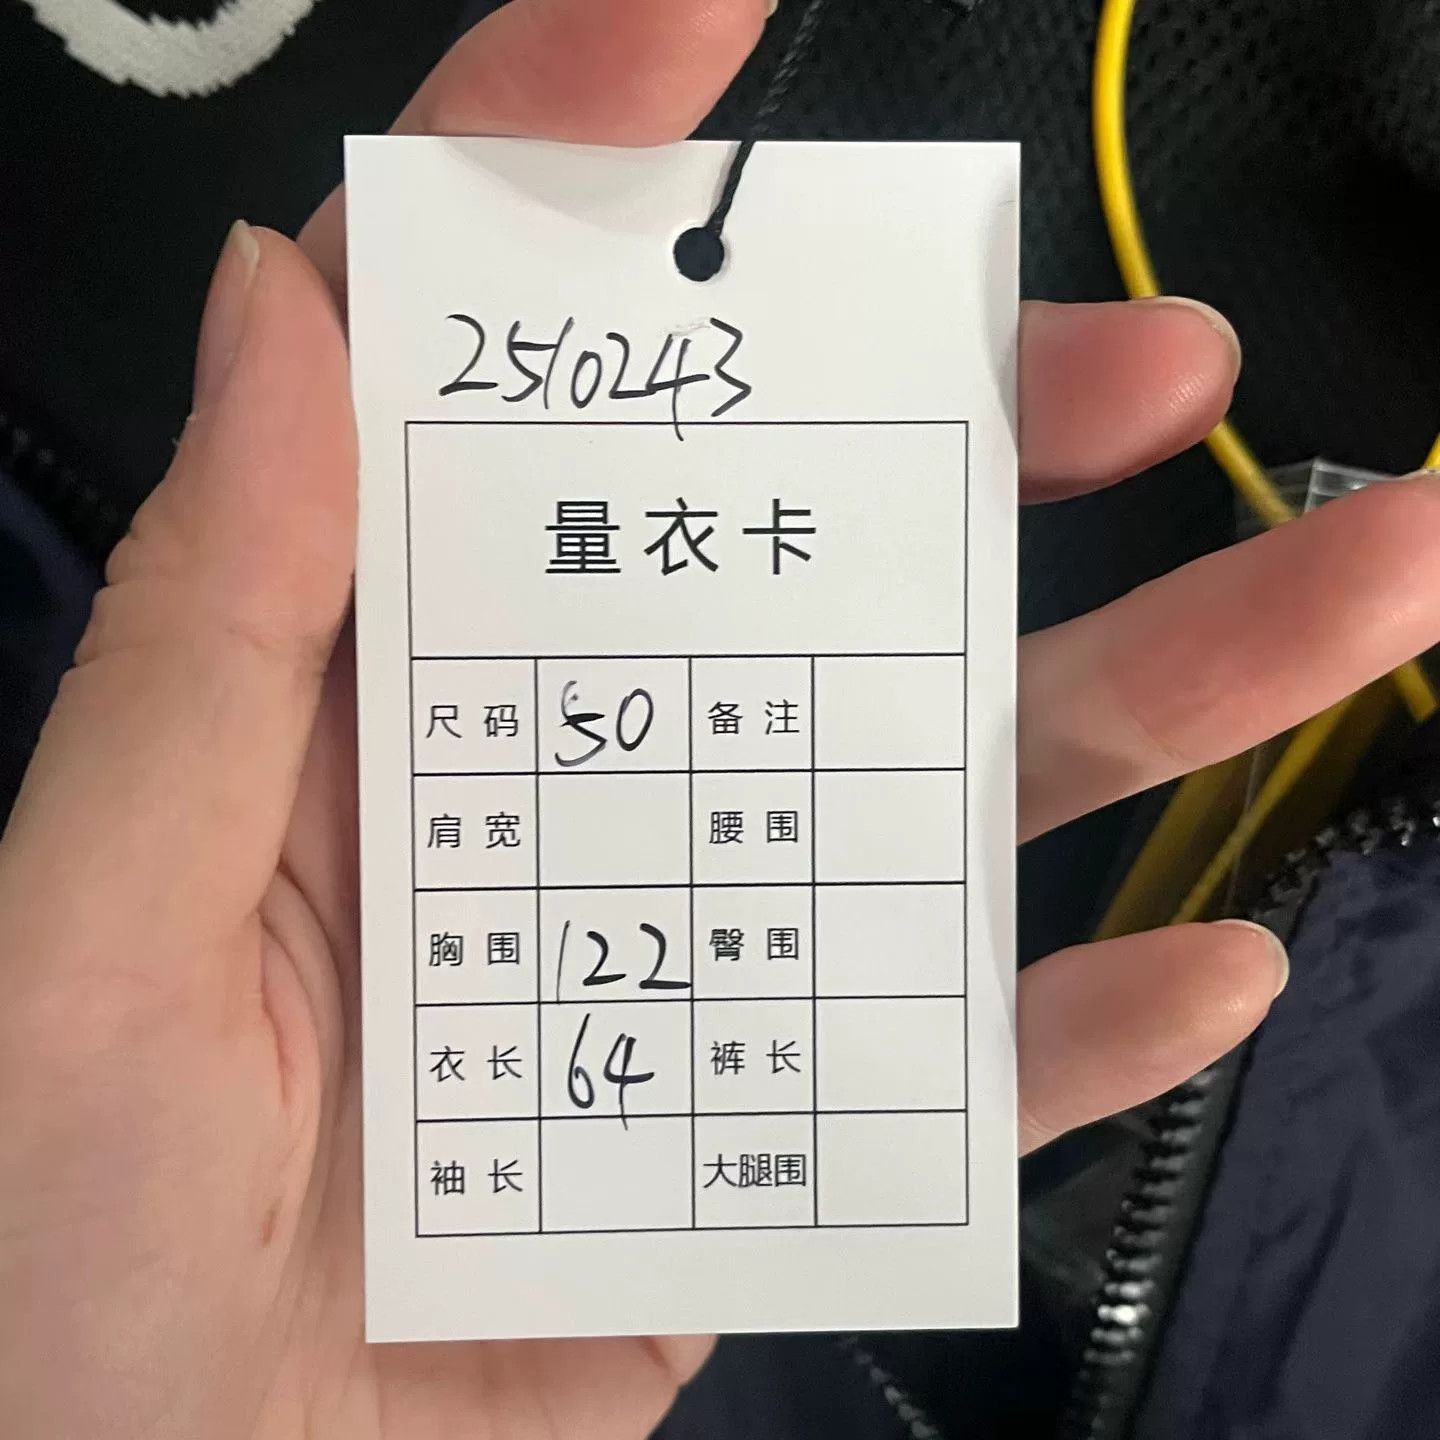 2510243
量衣卡
尺码 50 备注
肩宽 腰围
胸围 122 臀围
衣长 64 裤长
袖长 大腿围